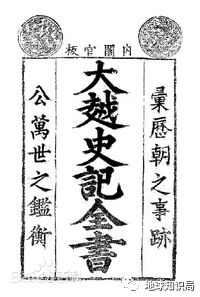 內閣官板
彙歷朝之事跡
大越史記全書
公萬世之鑑衡
地球知识局